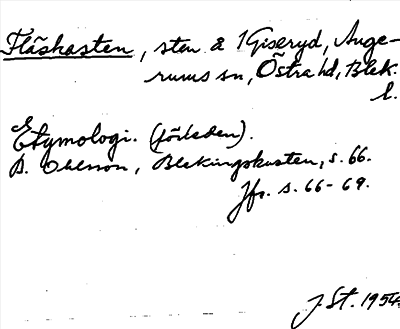 Fläskasten, sten å 1Giseryd, Auge-
rums sn, Östra hd, Blek.
l.
Etymologi. (förleden).
B. Ohlsson, Blekingskusten, s. 66.
Jfr. s. 66-69.
J. St. 1954.